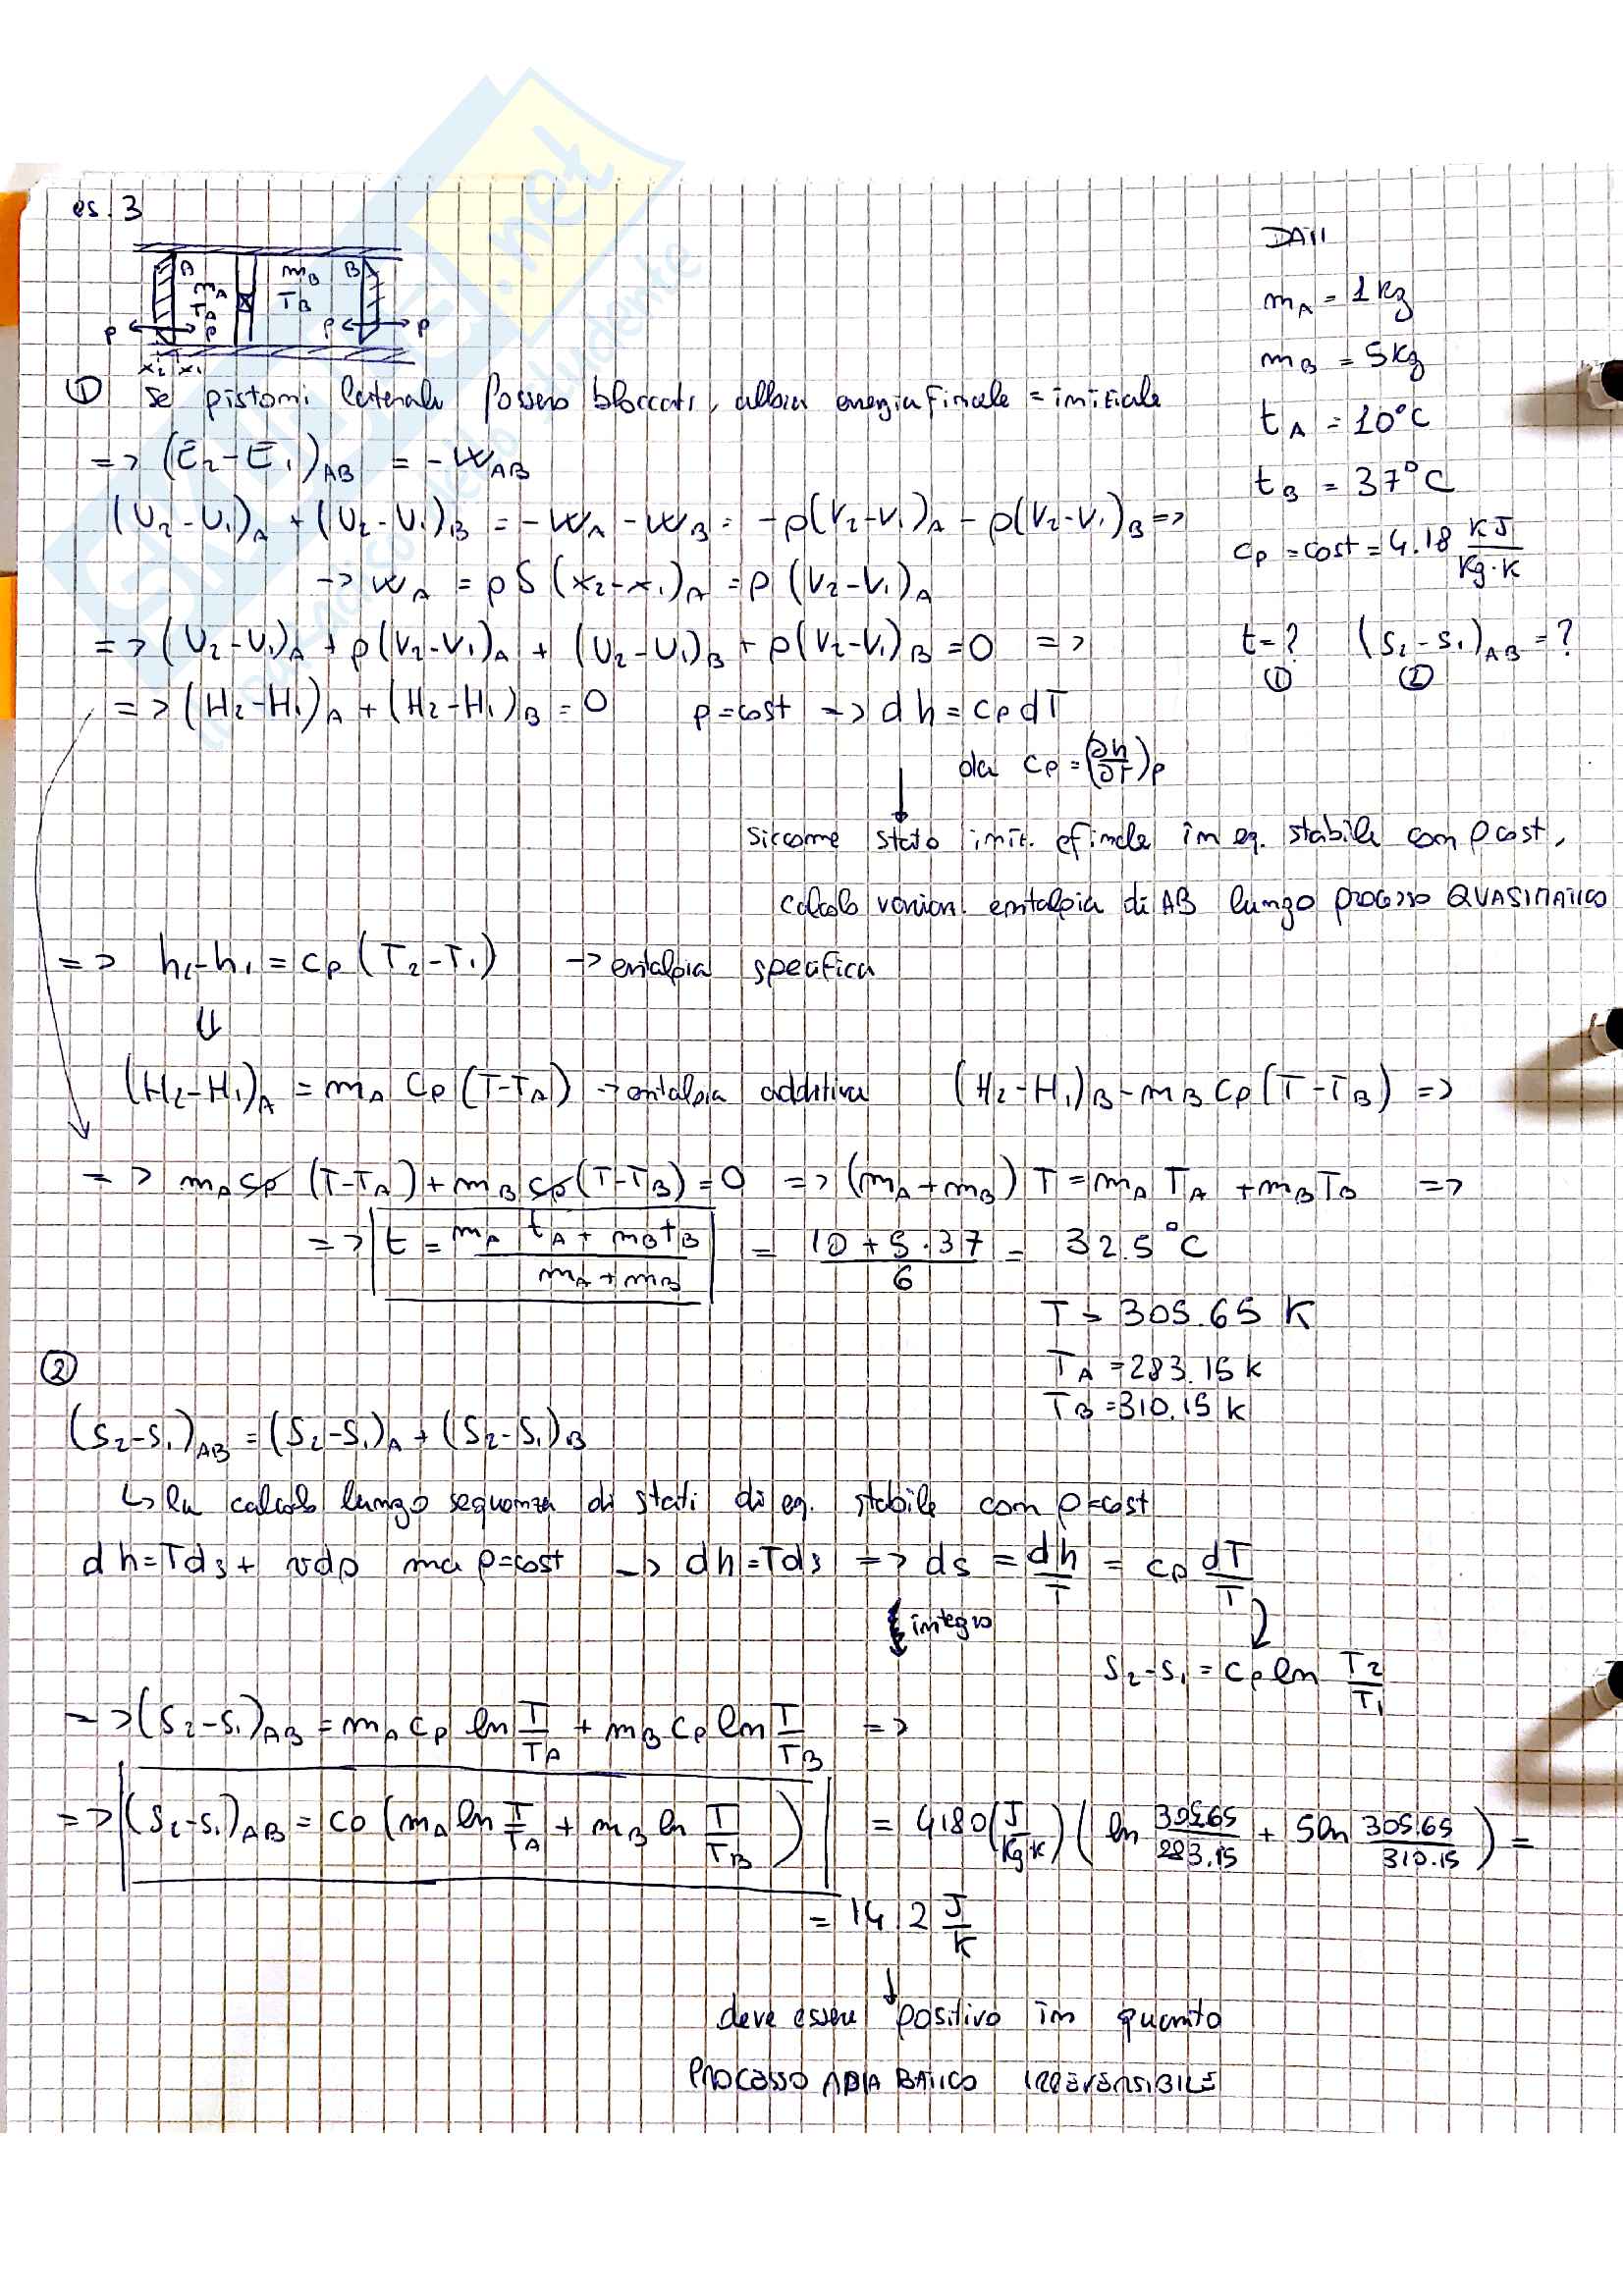 es. 3
DATI
A m_A T_A m_B T_B B
p p p p
x₂ x₁
m_A = 1 kg
m_B = 5 kg
t_A = 10°C
t_B = 37°C
c_p = cost = 4.18 kJ/kg·K
t = ? (S₂-S₁)_AB = ?
① ②
① se pistoni laterali fossero bloccati, allora energia finale = iniziale
=> (E₂-E₁)_AB = -W_AB
(U₂-U₁)_A + (U₂-U₁)_B = -W_A - W_B = -p(V₂-V₁)_A - p(V₂-V₁)_B =>
-> W_A = pS(x₂-x₁)_A = p(V₂-V₁)_A
=> (U₂-U₁)_A + p(V₂-V₁)_A + (U₂-U₁)_B + p(V₂-V₁)_B = 0 =>
=> (H₂-H₁)_A + (H₂-H₁)_B = 0 p=cost -> dh = c_p dT
da c_p = (∂h/∂T)_p
siccome stato iniz. e finale in eq. stabile con p cost,
calcolo varian. entalpia di AB lungo processo QUASISTATICO
=> h₂-h₁ = c_p (T₂-T₁) -> entalpia specifica
⇓
(H₂-H₁)_A = m_A c_p (T-T_A) -> entalpia additiva (H₂-H₁)_B - m_B c_p (T-T_B) =>
=> m_A c_p (T-T_A) + m_B c_p (T-T_B) = 0 => (m_A+m_B) T = m_A T_A + m_B T_B =>
=> t = (m_A t_A + m_B t_B)/(m_A + m_B) = (10 + 5·37)/6 = 32.5 °C
T = 305.65 K
T_A = 283.15 K
T_B = 310.15 K
②
(S₂-S₁)_AB = (S₂-S₁)_A + (S₂-S₁)_B
↳ la calcolo lungo sequenza di stati di eq. stabile con p=cost
dh = Tds + vdp ma p=cost -> dh = Tds => ds = dh/T = c_p dT/T
integro
s₂-s₁ = c_p ln T₂/T₁
=> (S₂-S₁)_AB = m_A c_p ln T/T_A + m_B c_p ln T/T_B =>
=> (S₂-S₁)_AB = c_p (m_A ln T/T_A + m_B ln T/T_B) = 4180 (J/kg·K) (ln 305.65/283.15 + 5 ln 305.65/310.15) =
= 14.2 J/K
deve essere positivo in quanto
PROCESSO ADIABATICO IRREVERSIBILE